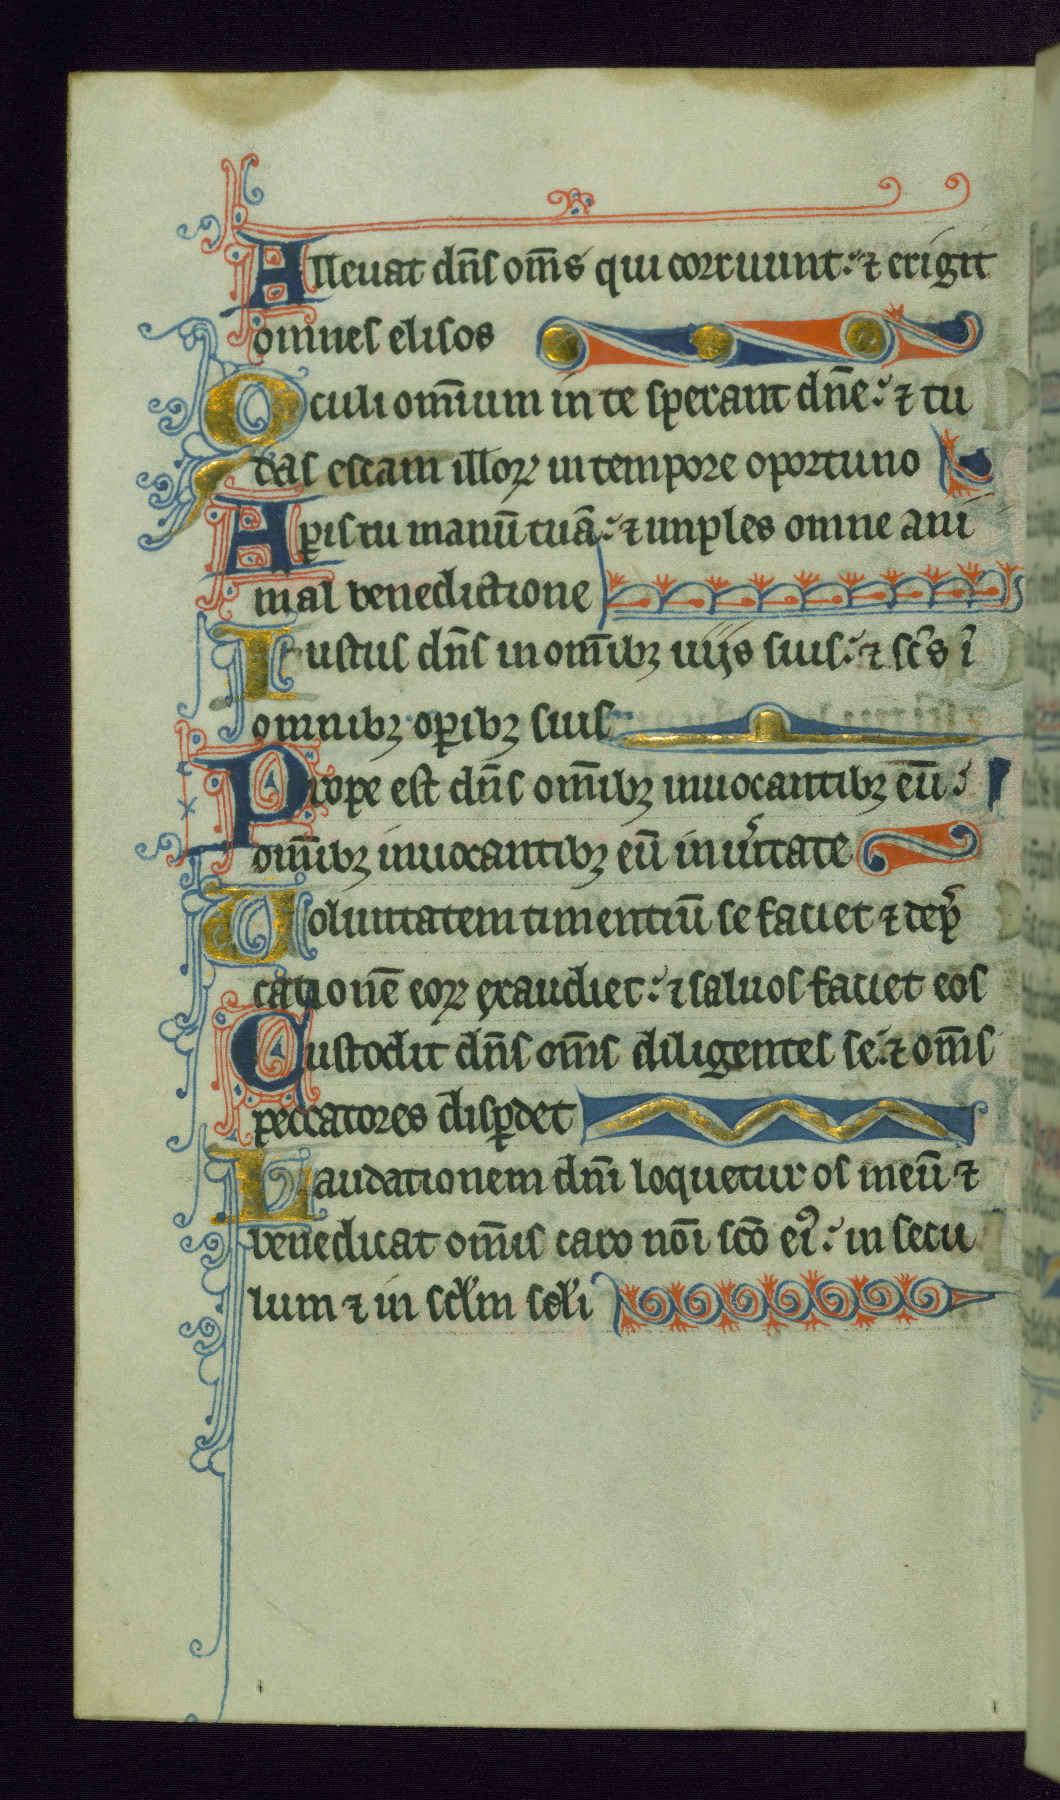 Alleuat dn̄s om̄s qui corruunt: ⁊ erigit
omnes elisos
Oculi om̄ium in te sperant dn̄e: ⁊ tu
das escam illoꝝ in tempore oportuno
Aꝑis tu manū tuā: ⁊ imples omne ani
mal benedictione
Iustus dn̄s in om̄ibꝫ uiis suis: ⁊ sc̄s ī
omnibꝫ oꝑibꝫ suis
Prope est dn̄s om̄ibꝫ inuocantibꝫ eū:
om̄ibꝫ inuocantibꝫ eū in ũitate
Uoluntatem timentiū se faciet ⁊ dep̃
cationē eoꝝ exaudiet: ⁊ saluos faciet eos
Custodit dn̄s om̄s diligentes se: ⁊ om̄s
peccatores disꝑdet
Laudationem dn̄i loquetur os meū ⁊
benedicat om̄is caro nōi scō eiꝰ: in secu
lum ⁊ in scl̄m scl̄i